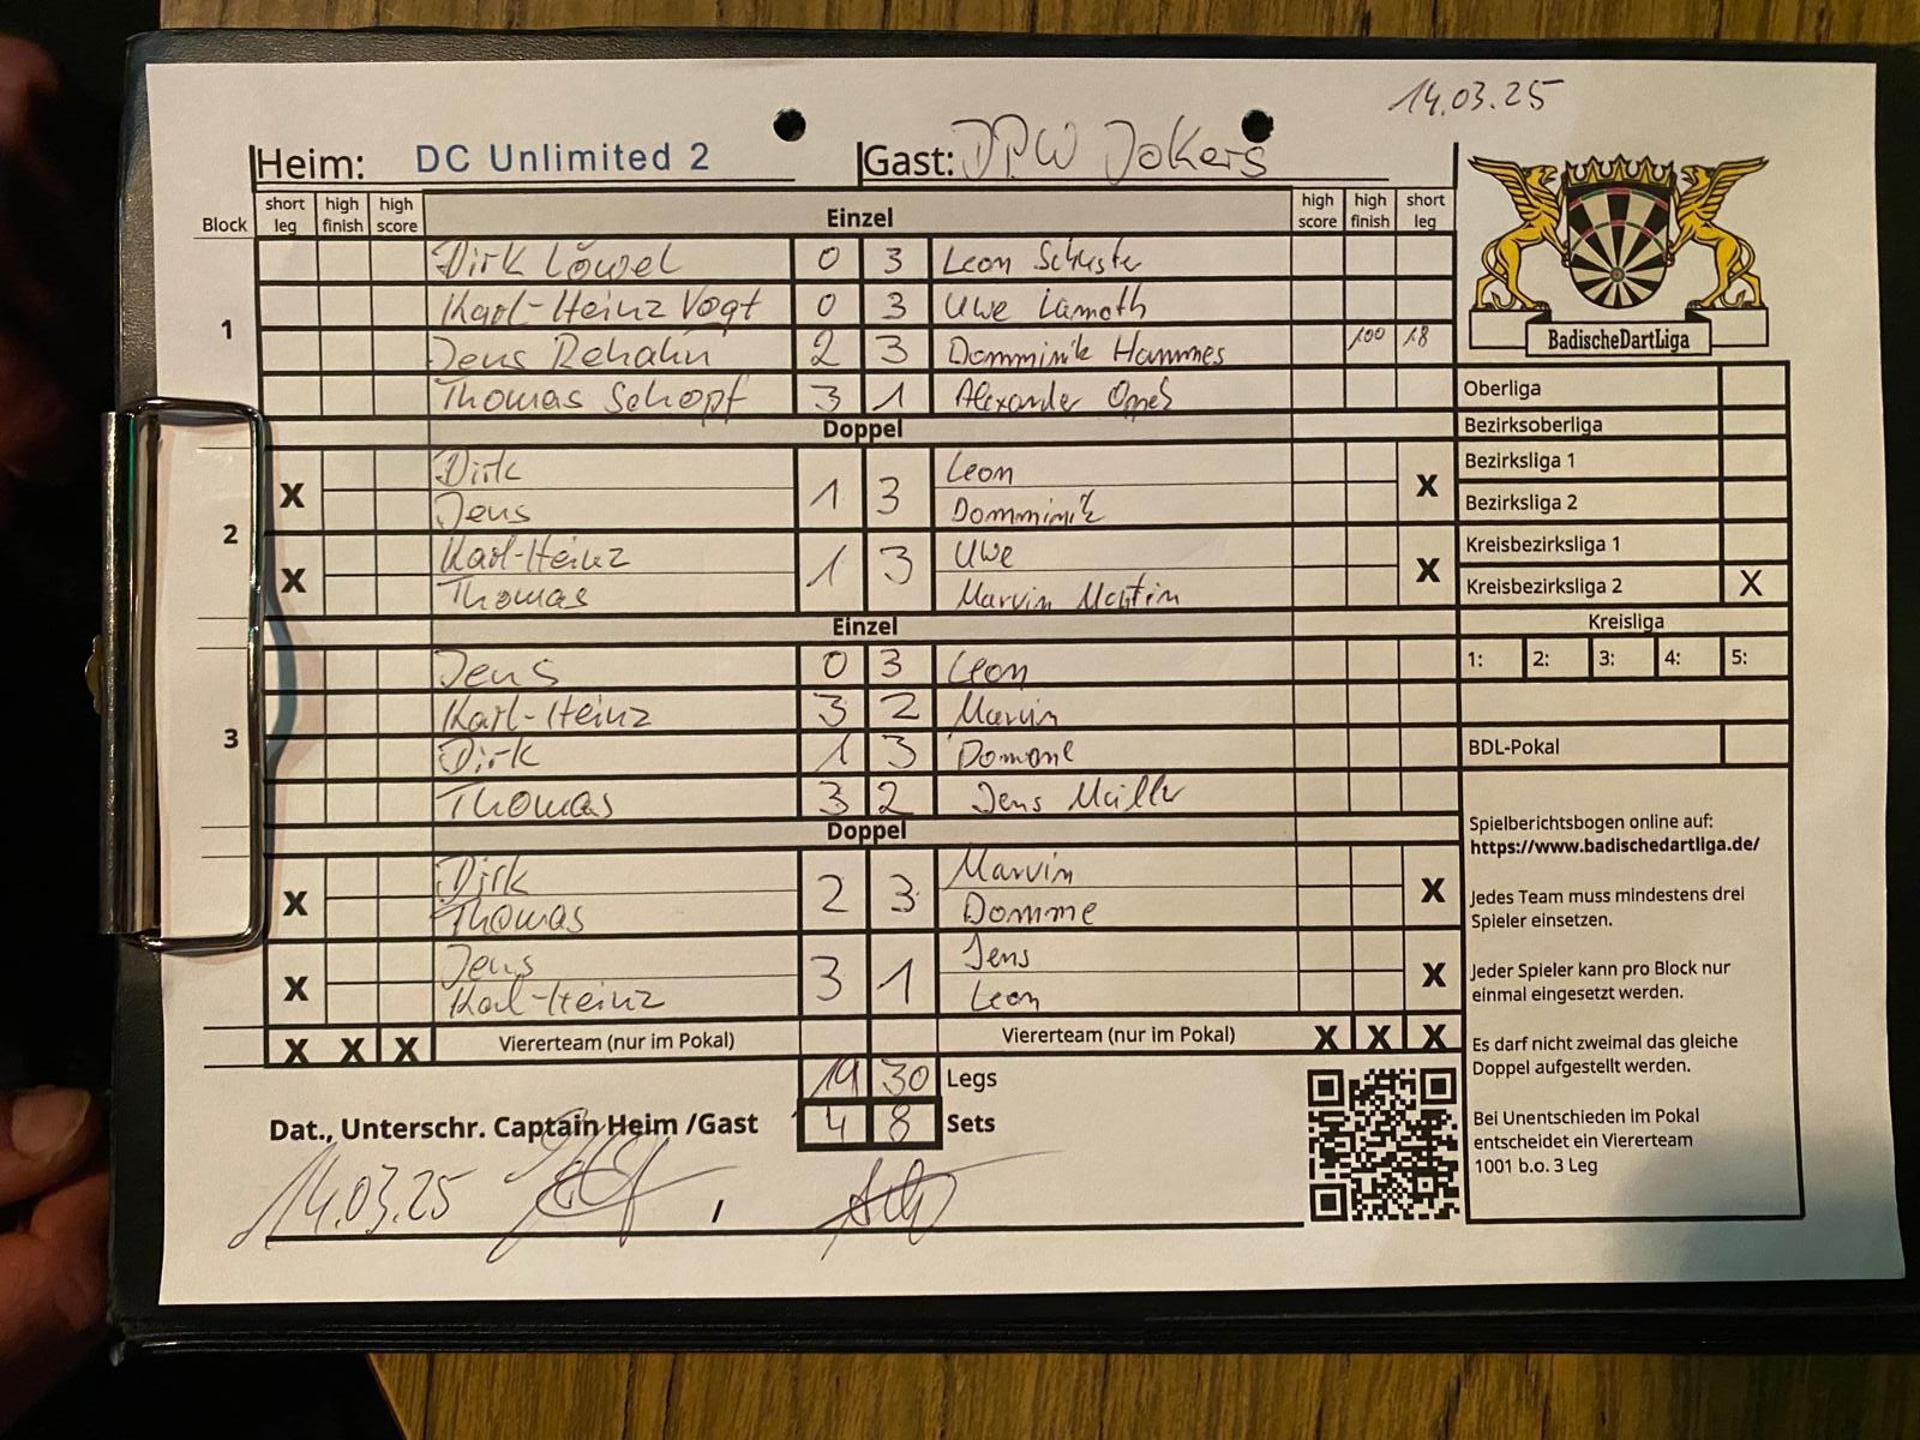 14.03.25
Heim: DC Unlimited 2 Gast: DPW Jokers
Block short leg high finish high score Einzel high score high finish short leg
1
Dirk Löwel 0 3 Leon Schuster
Karl-Heinz Vogt 0 3 Uwe Lamoth
Jens Rehahn 2 3 Domminik Hammes 100 18
Thomas Schopf 3 1 Alexander
Doppel
2
X Dirk 1 3 Leon X
Jens Domminik
X Karl-Heinz 1 3 Uwe X
Thomas Marvin Martin
Einzel
3
Jens 0 3 Leon
Karl-Heinz 3 2 Marvin
Dirk 1 3 Domme
Thomas 3 2 Jens Müller
Doppel
X Dirk 2 3 Marvin X
Thomas Domme
X Jens 3 1 Jens X
Karl-Heinz Leon
X X X Vierterteam (nur im Pokal) Vierterteam (nur im Pokal) X X X
19 30 Legs
Dat., Unterschr. Captain Heim /Gast 4 8 Sets
14.03.25 /
BadischeDartLiga
Oberliga
Bezirksoberliga
Bezirksliga 1
Bezirksliga 2
Kreisbezirksliga 1
Kreisbezirksliga 2 X
Kreisliga
1: 2: 3: 4: 5:
BDL-Pokal
Spielberichtsbogen online auf:
https://www.badischedartliga.de/
Jedes Team muss mindestens drei
Spieler einsetzen.
Jeder Spieler kann pro Block nur
einmal eingesetzt werden.
Es darf nicht zweimal das gleiche
Doppel aufgestellt werden.
Bei Unentschieden im Pokal
entscheidet ein Viererteam
1001 b.o. 3 Leg